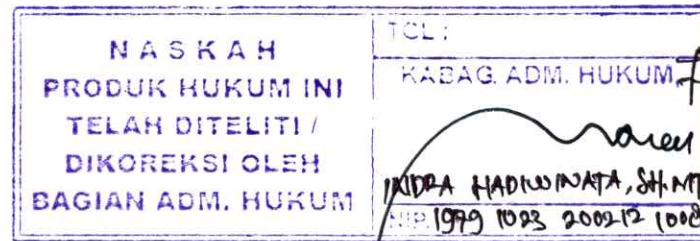 NASKAH
PRODUK HUKUM INI
TELAH DITELITI /
DIKOREKSI OLEH
BAGIAN ADM. HUKUM
TGL :
KABAG. ADM. HUKUM
INDRA HADIWINATA, SH.MT
NIP. 1979 1023 200212